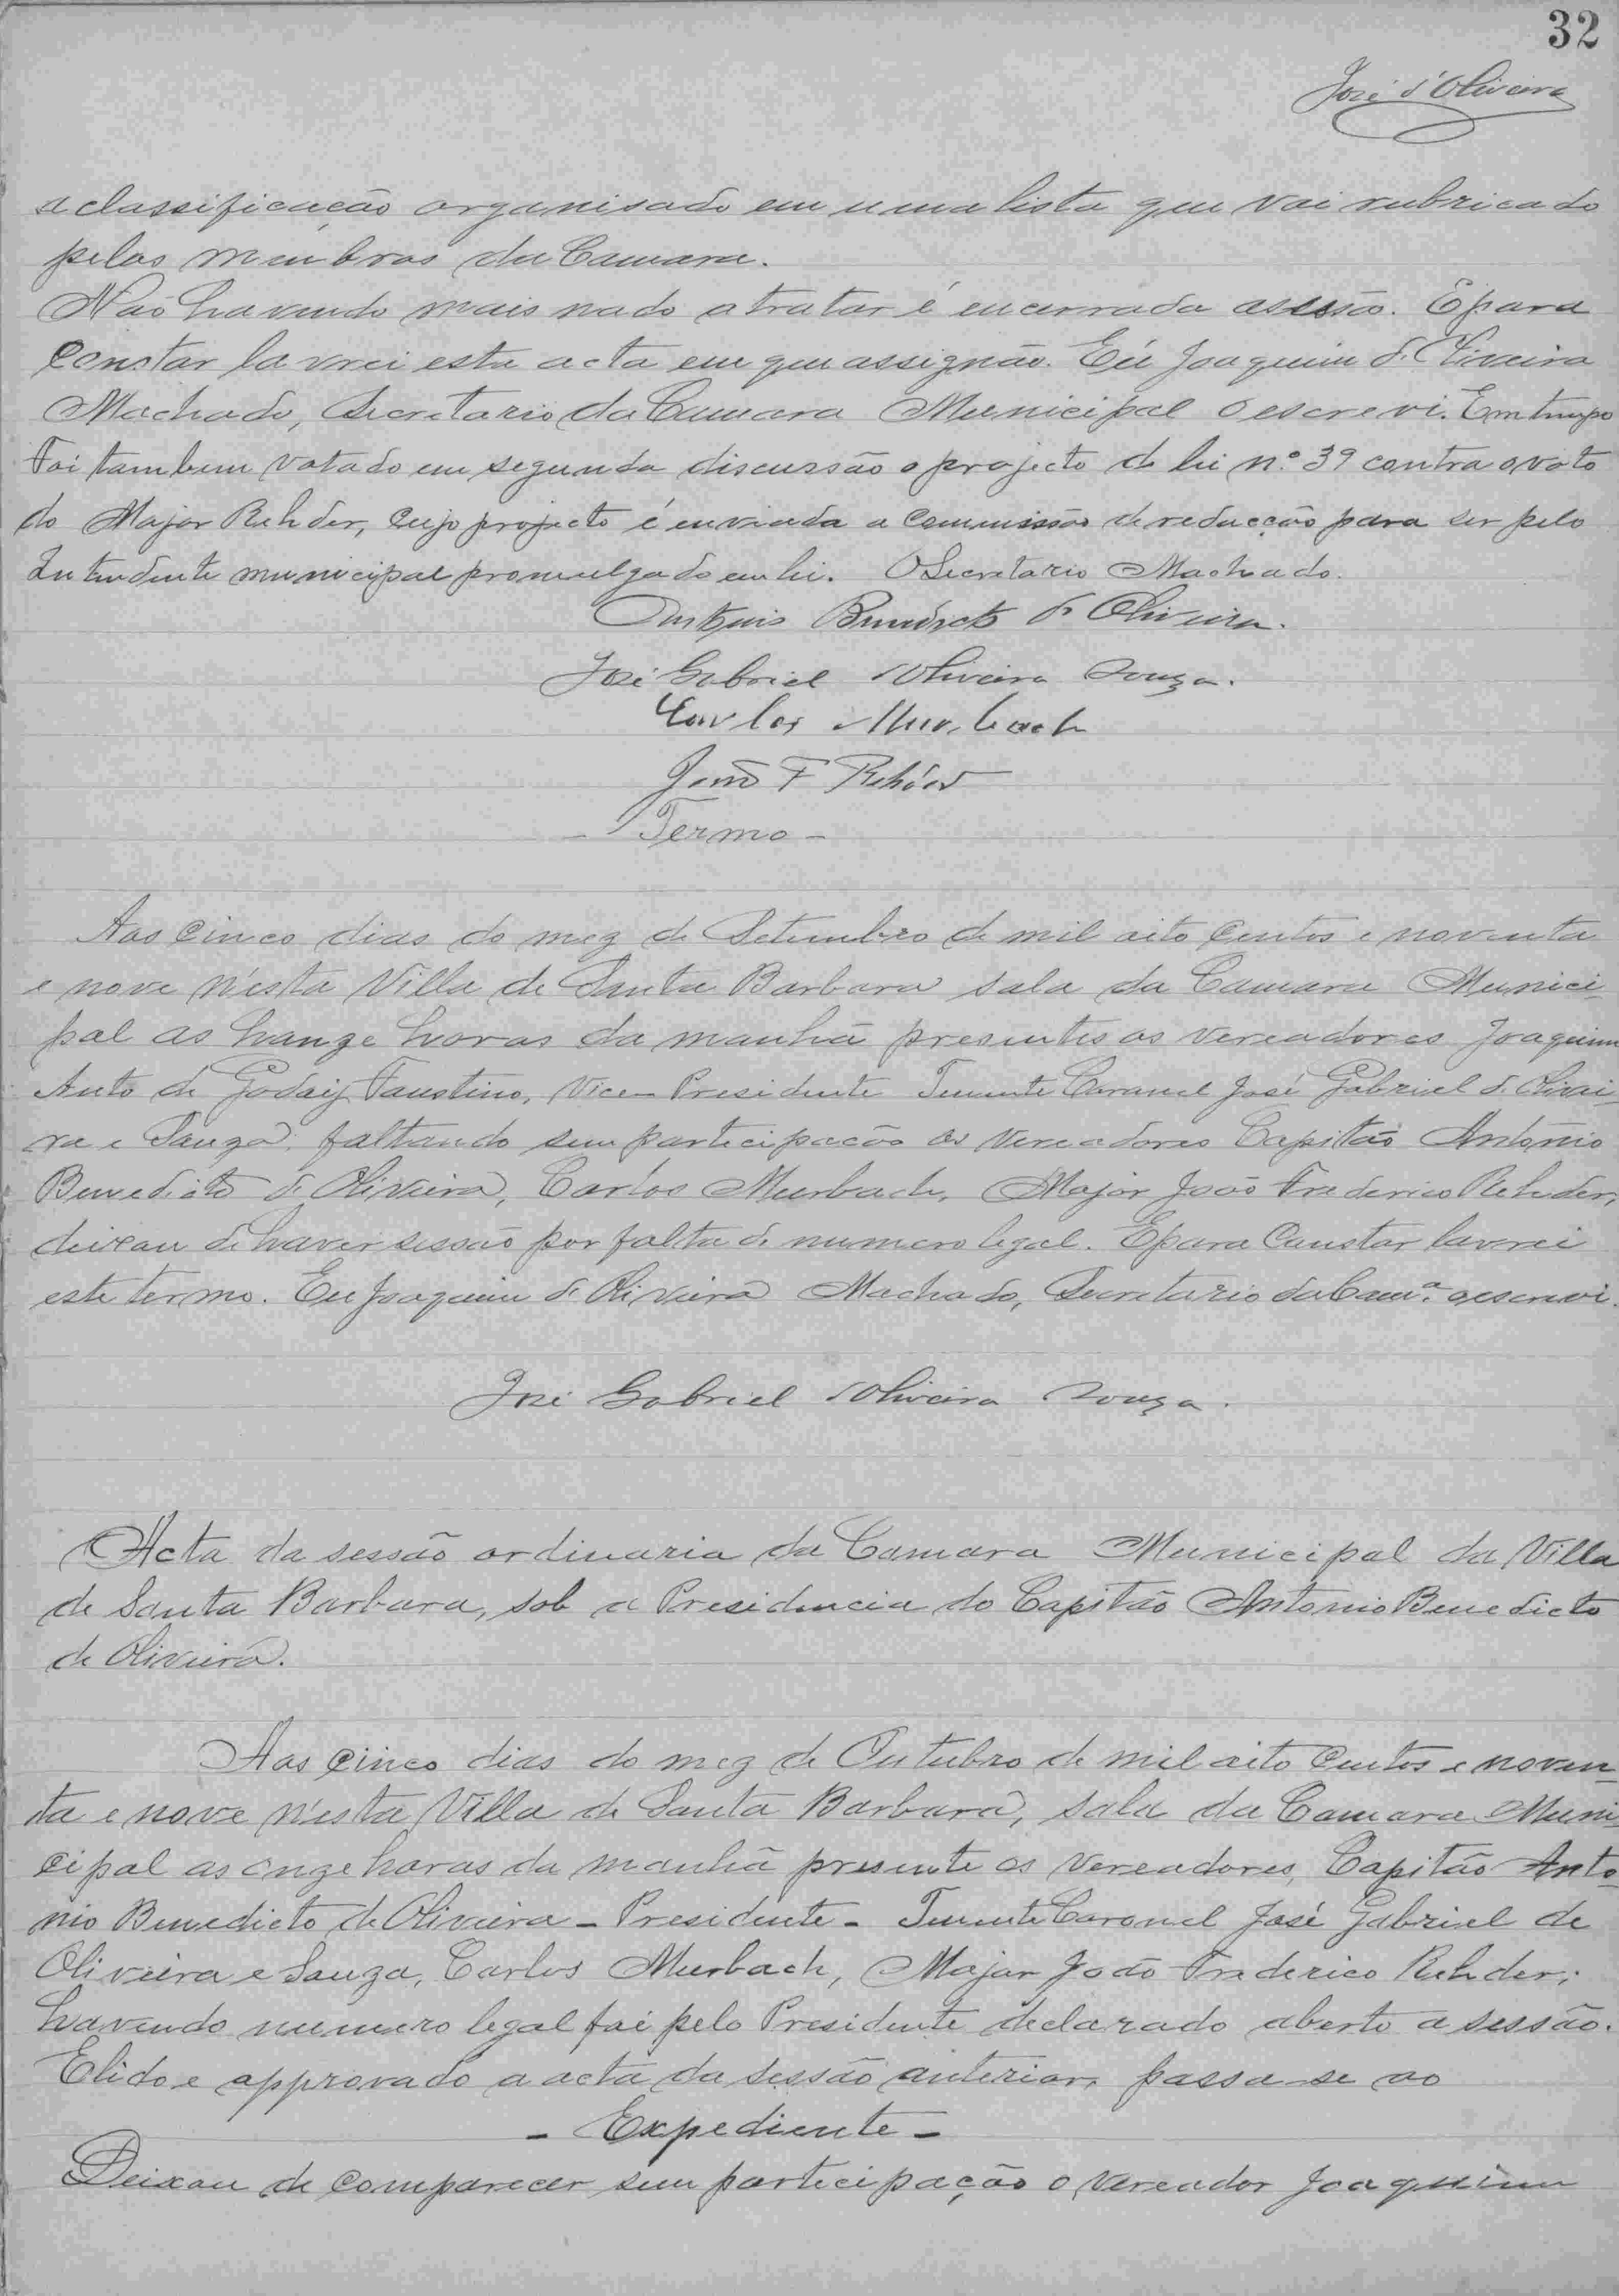 32
José d'Oliveira
a classificação organisado em uma lista que vai rubricado
pelos membros da Camara.
Não havendo mais nado a tratar é encerrada a sessão. E para
Constar lavrei esta acta em que assignão. Eu Joaquim d'Oliveira
Machado, Secretario da Camara Municipal o escrevi. Em tempo
Foi tambem votado em segunda discussão o projecto de lei n.º 39 contra o voto
do Major Rehder, cujo projecto é enviada a Commissão de redacção para ser pelo
Intendente municipal promulgado em lei. O Secretario Machado.
Antonio Benedicto d'Oliveira.
José Gabriel d'Oliveira Souza.
Carlos Murbach
João F Rehder
- Termo -
Aos cinco dias do mez de Setembro de mil oito centos e noventa
e nove n'esta Villa de Santa Barbara sala da Camara Munici-
pal as honze horas da manhã presentes os Vereadores Joaquim
Anto de Godoij Faustino, Vice-Presidente Tenente Coronel José Gabriel d'Olivei-
ra e Souza, faltando sem participação os Vereadores Capitão Antonio
Benedicto d'Oliveira, Carlos Murbach, Major João Frederico Rehder,
deixou de haver sessão por falta de numero legal. E para Constar lavrei
este termo. Eu Joaquim d'Oliveira Machado, Secretario da Cam.ª o escrevi.
José Gabriel d'Oliveira Souza.
Acta da sessão ordinaria da Camara Municipal da Villa
de Santa Barbara, sob a Presidencia do Capitão Antonio Benedicto
de Oliveira.
Aos cinco dias do mez de Outubro de mil oito centos e noven-
ta e nove n'esta Villa de Santa Barbara, sala da Camara Muni-
cipal as onze horas da manhã presente os Vereadores, Capitão Anto-
nio Benedicto de Oliveira - Presidente - Tenente Coronel José Gabriel de
Oliveira e Souza, Carlos Murbach, Major João Frederico Rehder;
havendo numero legal foi pelo Presidente declarado aberto a sessão.
E lido e approvado a acta da sessão anterior, passa-se ao
- Expediente -
Deixou de Comparecer sem participação o Vereador Joaquim